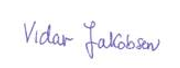 Vidar Jakobsen